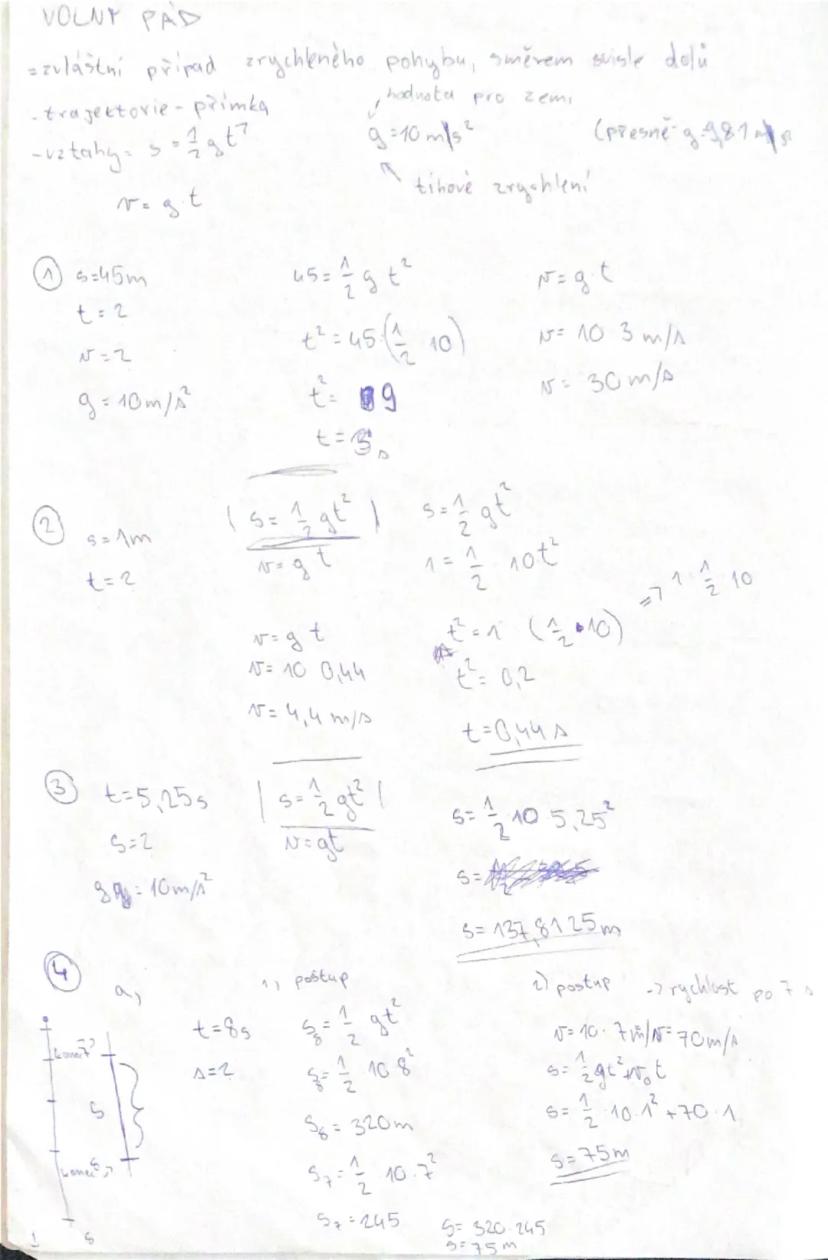 VOLNÝ PÁD
= zvláštní případ zrychleného pohybu, směrem svisle dolů
- trajektorie - přímka
hodnota pro zemi
- vztahy - s = 1/2 g t²
g = 10 m/s²
(přesně g = 9,81 m/s
tíhové zrychlení
v = g t
① s = 45m
t = ?
v = ?
g = 10 m/s²
45 = 1/2 g t²
t² = 45 (1/2 10)
t² = 9
t = 3 s
v = g t
v = 10 3 m/s
v = 30 m/s
② s = 1m
t = ?
| s = 1/2 gt² |
v = g t
v = g t
v = 10 0,44
v = 4,4 m/s
s = 1/2 gt²
1 = 1/2 10t²
t² = 1 (1/2 · 10)
=> 1 1/2 10
t² = 0,2
t = 0,44 s
③ t = 5,25 s
s = ?
g = 10 m/s²
| s = 1/2 gt² |
v = gt
s = 1/2 10 5,25²
s =
s = 137,8125 m
④ a,
konec 7.
s
t = 8s
s = ?
1, postup
s₈ = 1/2 gt²
s₈ = 1/2 10 8²
s₈ = 320m
s₇ = 1/2 10.7²
s₇ = 245
s = 320 245
s = 75 m
2) postup -> rychlost po 7 s
v = 10 · 7 m/s v = 70 m/s
s = 1/2 gt² + v₀ t
s = 1/2 · 10 · 1² + 70 · 1
s = 75m